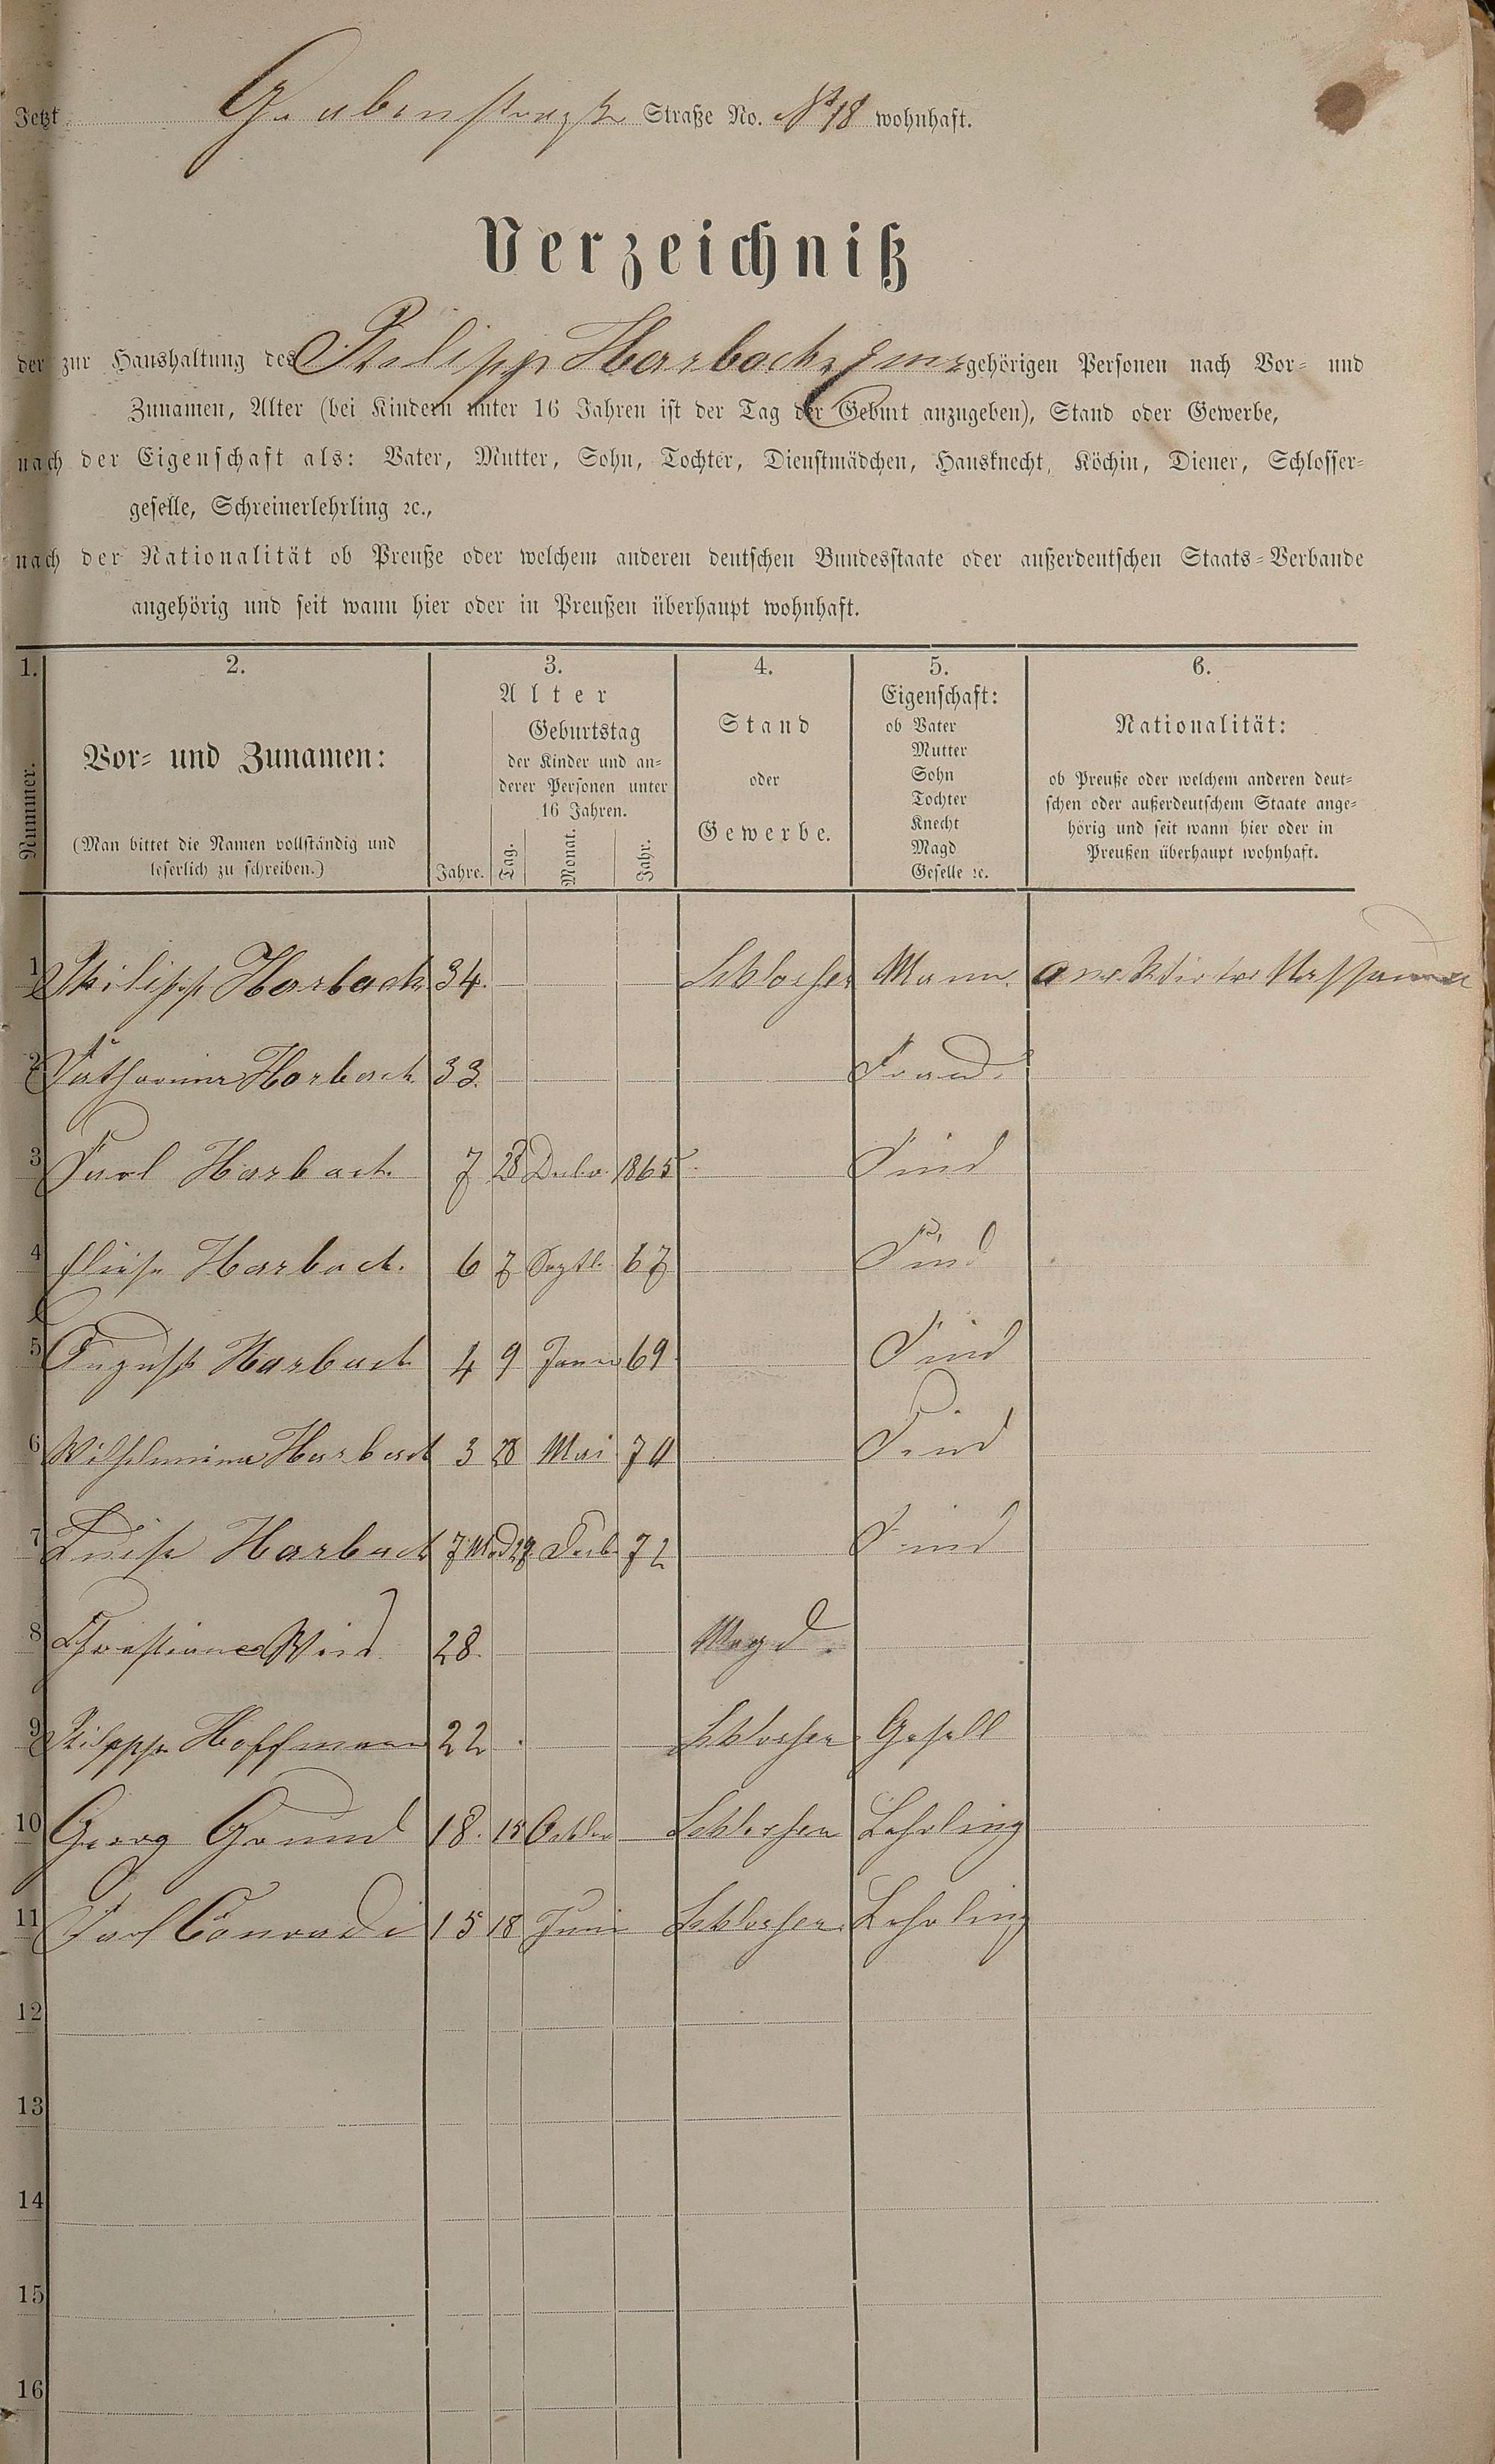 Jetzt Grabenstraße Straße No. No 18 wohnhaft.
Verzeichniß
der zur Haushaltung des Philipp Harbach gehörigen Personen nach Vor- und
Zunamen, Alter (bei Kindern unter 16 Jahren ist der Tag der Geburt anzugeben), Stand oder Gewerbe,
nach der Eigenschaft als: Vater, Mutter, Sohn, Tochter, Dienstmädchen, Hausknecht, Köchin, Diener, Schlosser-
geselle, Schreinerlehrling ꝛc.,
nach der Nationalität ob Preuße oder welchem anderen deutschen Bundesstaate oder außerdeutschen Staats-Verbande
angehörig und seit wann hier oder in Preußen überhaupt wohnhaft.
1. 2. 3. 4. 5. 6.
Nummer.
Vor- und Zunamen:
(Man bittet die Namen vollständig und
leserlich zu schreiben.)
Alter
Jahre.
Geburtstag
der Kinder und an-
derer Personen unter
16 Jahren.
Tag. Monat. Jahr.
Stand
oder
Gewerbe.
Eigenschaft:
ob Vater
Mutter
Sohn
Tochter
Knecht
Magd
Geselle ꝛc.
Nationalität:
ob Preuße oder welchem anderen deut-
schen oder außerdeutschem Staate ange-
hörig und seit wann hier oder in
Preußen überhaupt wohnhaft.
1 Philipp Harbach 34. Schlosser Mann. Nassauer
2 Katharina Harbach 33. Frau.
3 Karl Harbach 7 28 1865 Kind
4 Eliese Harbach. 6 7 Septb. 67 Kind
5 August Harbach 4 9 Janu 69 Kind
6 Wilhelmina Harbach 3 28 Mai 70 Kind
7 Luise Harbach 7 29 72 Kind
8 28. Magd.
9 Philipp Hoffmann 22 Schlosser Gesell
10 Georg Grund 18. 15 Octbr Schlosser Lehrling
11 Karl Conradi 15 18 Juni Schlosser Lehrling
12
13
14
15
16